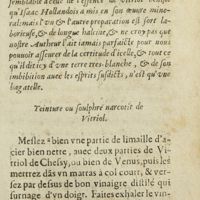 semblable à celle de l'essence de Vitriol
qu'Isaac Hollandois a mis en son œuure mine-
ral: mais l'vn & l'autre preparation est fort la-
borieuse, & de longue haleine, & ne croy pas que
nostre Autheur l'ait iamais parfaicte pour nous
pouuoir asseurer de la certitude d'icelle, & tout ce
qu'il dit icy d'vne terre tres-blanche, & de son
imbibition auec les esprits susdicts, n'est qu'vne
bagatelle.
Teinture ou soulphre narcotic de
Vitriol.
Meslez bien vne partie de limaille d'a-
cier bien nette, auec deux parties de Vi-
triol de Chessy, ou bien de Venus, puis les
mettrez dãs vn matras à col court, & ver-
sez par dessus de bon vinaigre distilé qui
surnage d'vn doigt. Faites exhaler le vin-